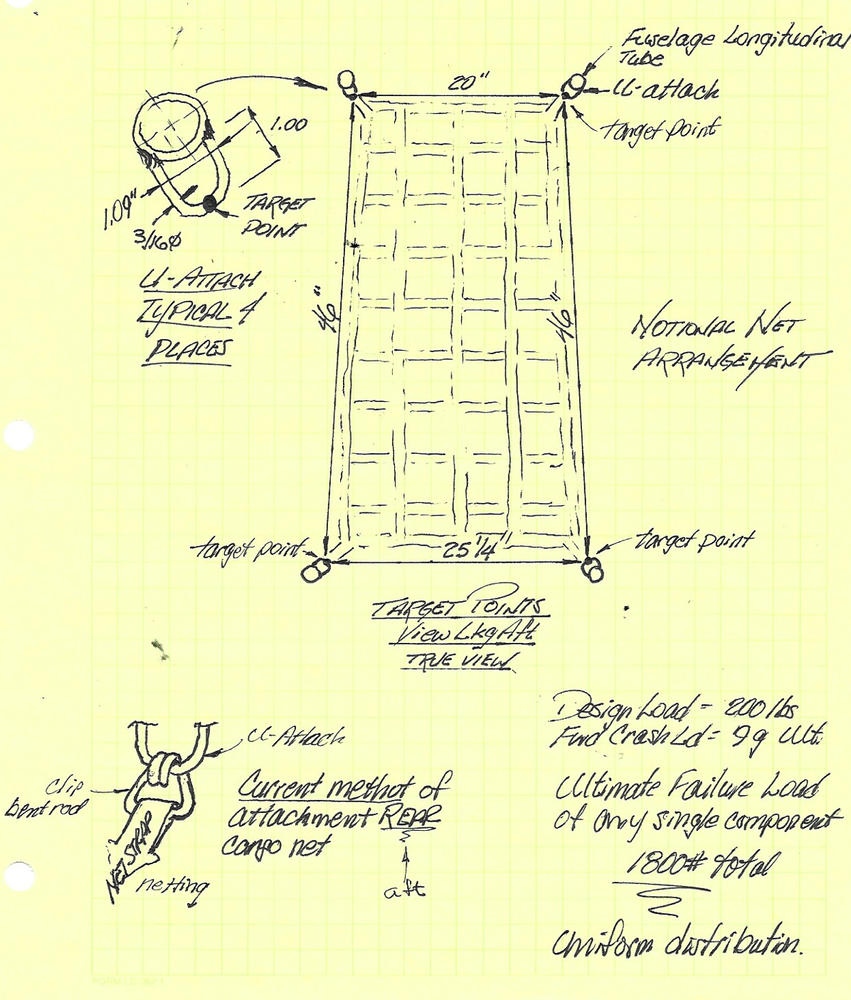 Fuselage Longitudinal
Tube
U-attach
target point
20"
1.00
1.09"
3/16⌀
TARGET
POINT
U-ATTACH
TYPICAL 4
PLACES
46"
46"
NOTIONAL NET
ARRANGEMENT
target point
25 1/4"
target point
TARGET POINTS
View Lkg Aft
TRUE VIEW
U-Attach
clip
bent rod
NET STRAP
netting
Current methot of
attachment REAR
cargo net
aft
Design Load = 200 lbs
Fwd Crash Ld = 9g Ult.
Ultimate Failure Load
of any single component
1800# total
Uniform distribution.